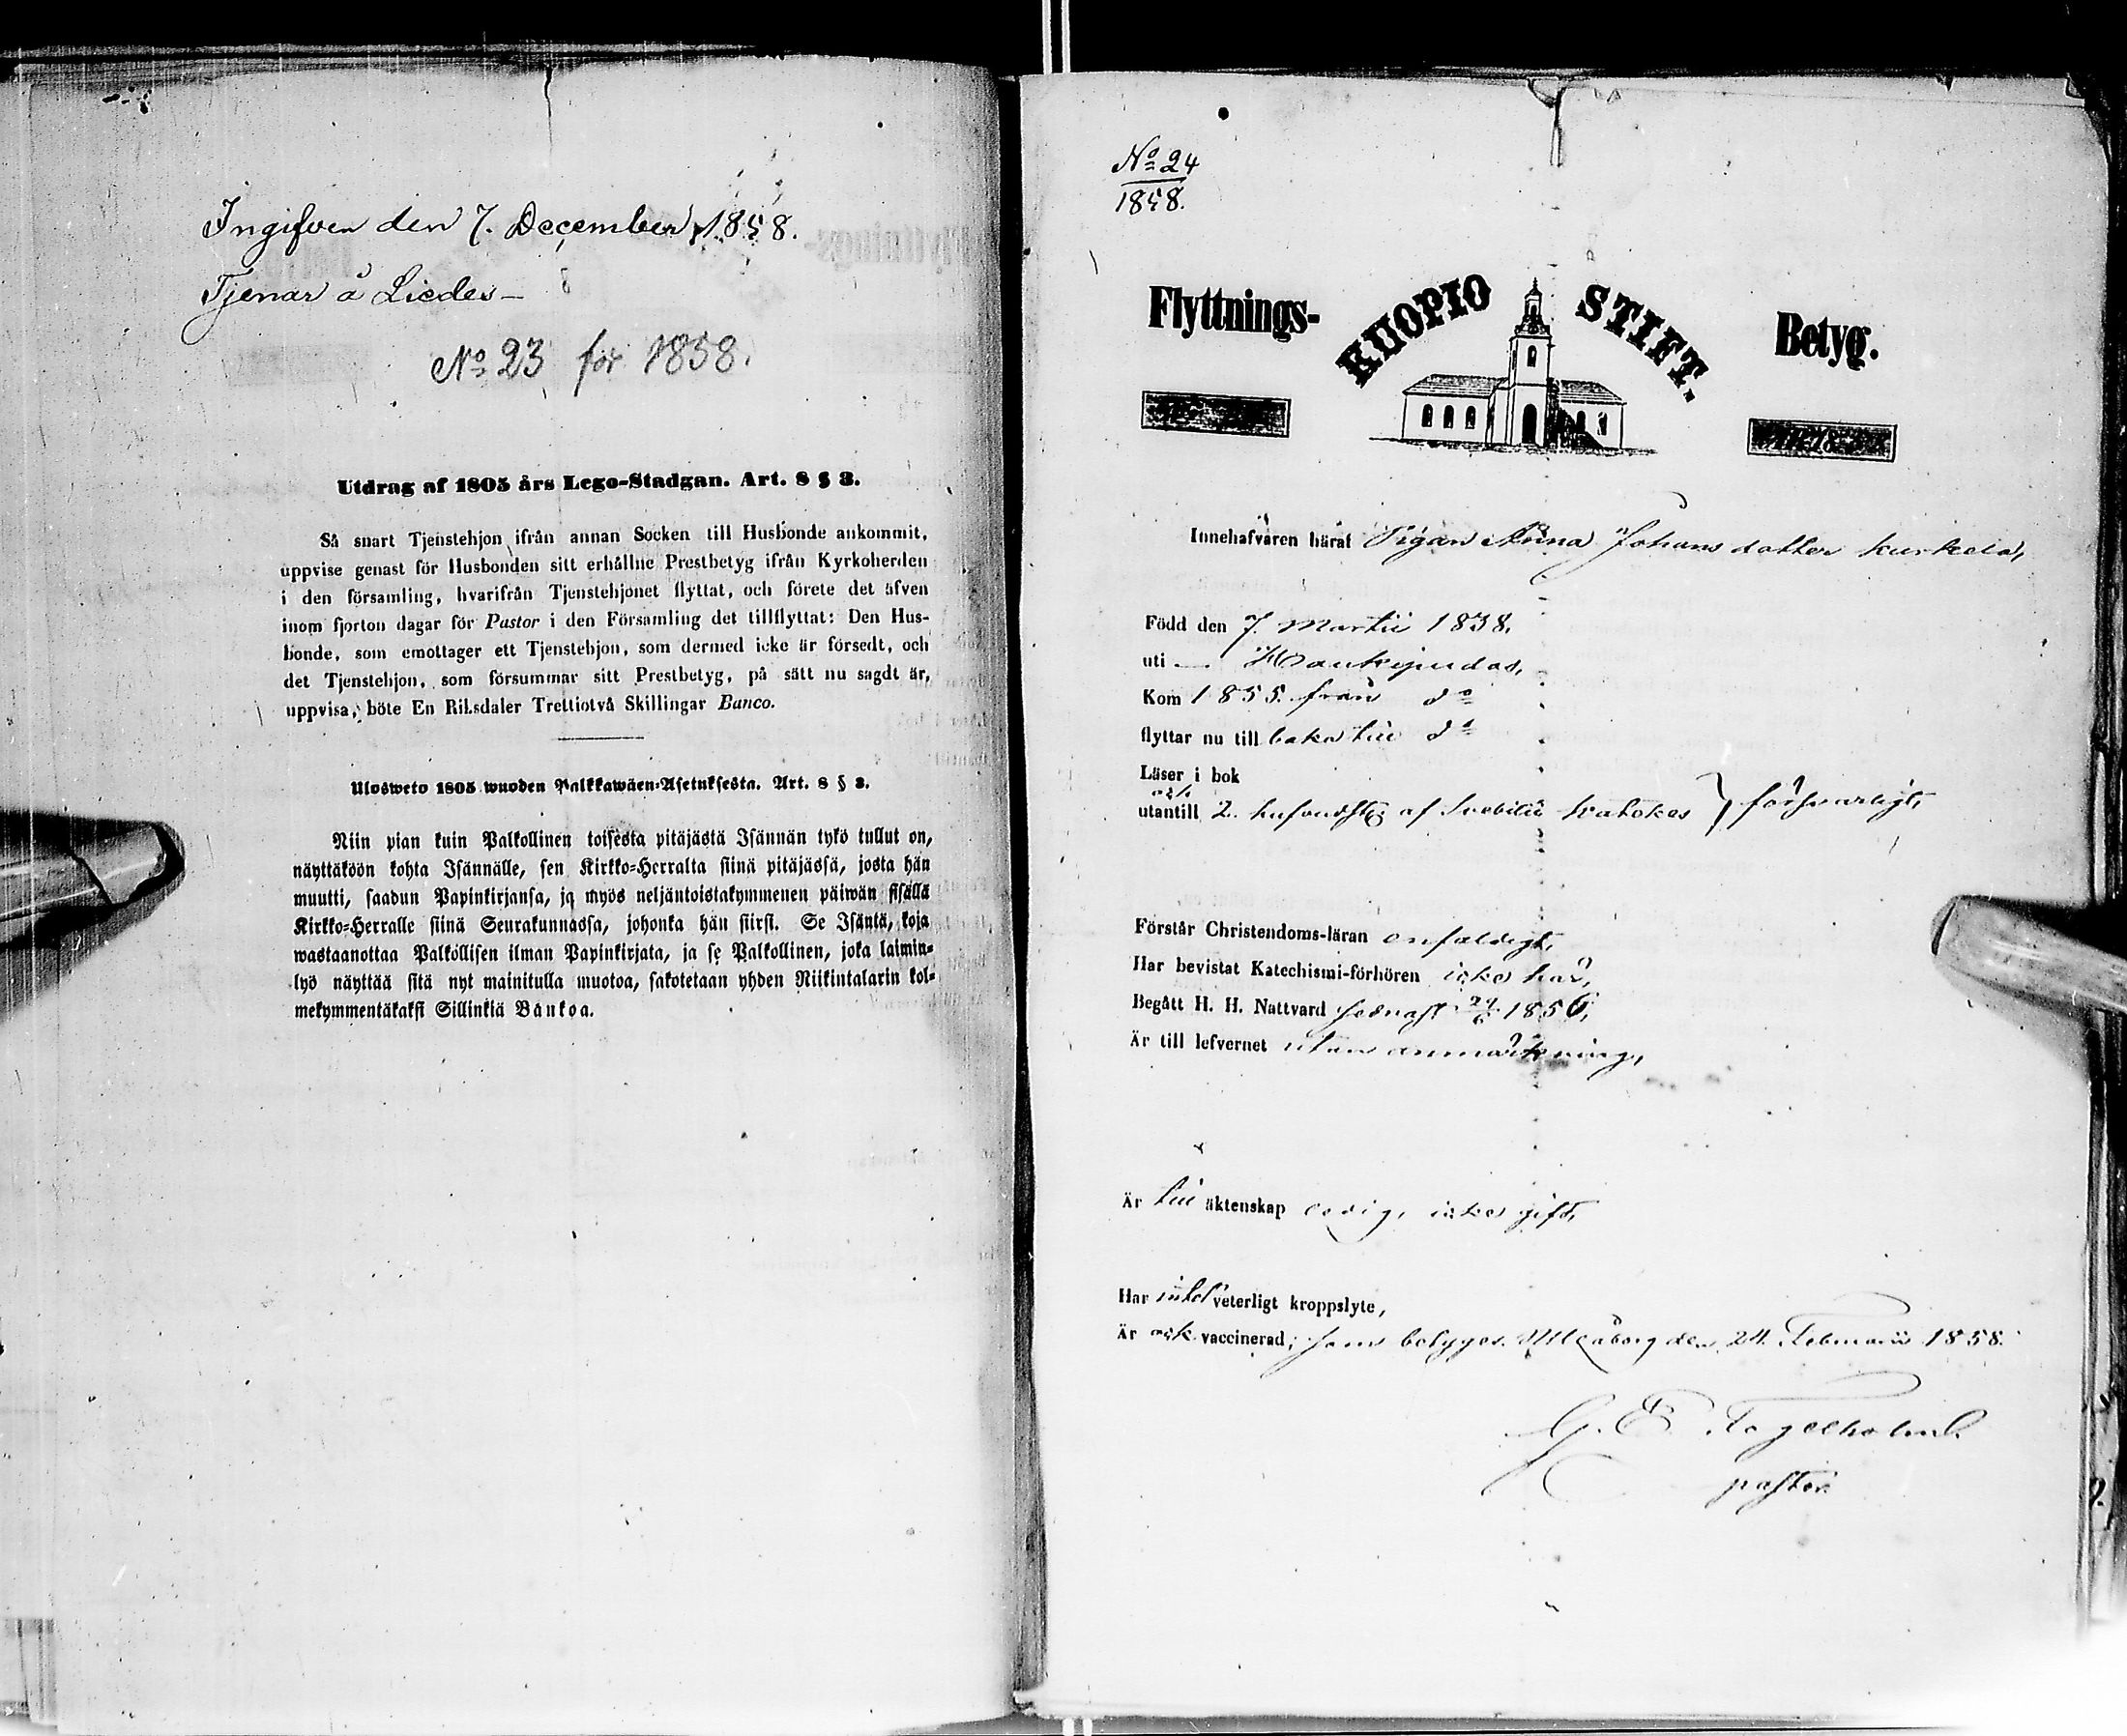 Ingifven den 7. December 1858.
Tjenar å Liedes –
No 23 för 1858.
Utdrag af 1805 års Lego-Stadgan. Art. 8 § 3.
Så snart Tjenstehjon ifrån annan Socken till Husbonde ankommit,
uppvise genast för Husbonden sitt erhållne Prestbetyg ifrån Kyrkoherden
i den församling, hvarifrån Tjenstehjonet flyttat, och förete det äfven
inom fjorton dagar för Pastor i den Församling det tillflyttat: Den Hus-
bonde, som emottager ett Tjenstehjon, som dermed icke är försedt, och
det Tjenstehjon, som försummar sitt Prestbetyg, på sätt nu sagdt är,
uppvisa, böte En Riksdaler Trettiotvå Skillingar Banco.
Ulosweto 1805 wuoden Palkkawäen-Asetuksesta. Art. 8 § 3.
Niin pian kuin Palkollinen toisesta pitäjästä Isännän tykö tullut on,
näyttäköön kohta Isännälle, sen Kirkko-Herralta siinä pitäjässä, josta hän
muutti, saadun Papinkirjansa, ja myös neljäntoistakymmenen päiwän sisällä
Kirkko-Herralle siinä Seurakunnassa, johonka hän siirsi. Se Isäntä, koja
wastaanottaa Palkollisen ilman Papinkirjata, ja se Palkollinen, joka laimin-
lyö näyttää sitä nyt mainitulla muotoa, sakotetaan yhden Riikintalarin kol-
mekymmentäkaksi Sillinkiä Bankoa.
No 24
1858.
Flyttnings- KUOPIO STIFT. Betyg.
Innehafvaren häraf Pigan Anna Johansdotter Kurkela,
Född den 7. Martii 1838.
uti — Haukipudas,
Kom 1855. från do
flyttar nu till baka till do
Läser i bok
och
utantill 2. hufvudst. af Svebilii Kateches } försvarligt,
Förstår Christendoms-läran enfaldigt,
Har bevistat Katechismi-förhören icke här,
Begått H. H. Nattvard sednast 29/6 1856,
Är till lefvernet utan anmärkning,
Är till äktenskap ledig, icke gift,
Har intet veterligt kroppslyte,
Är ock vaccinerad; som betyges. Uleåborg den 24. Februarii 1858.
G. E. Tegelholm.
pastor.